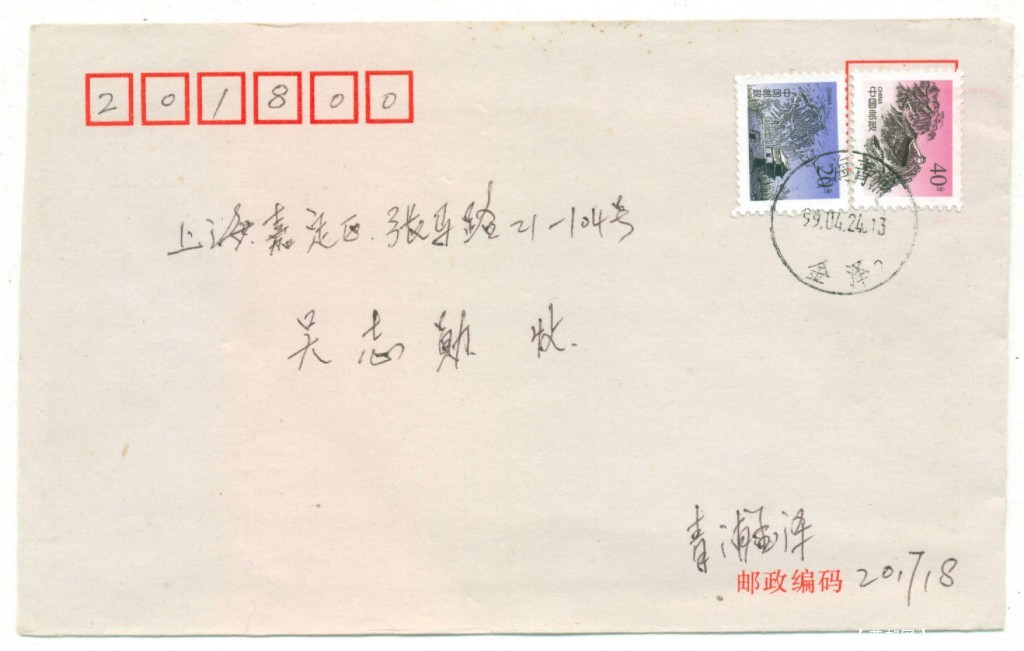 201800
中国邮政 CHINA 20分
中国邮政 CHINA 40分
上海青浦
99.04.24.13
金泽
上海嘉定区张马路21-104号
吴志勋 收
青浦金泽
邮政编码 201718